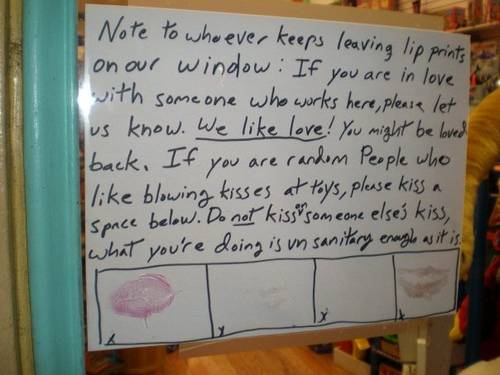 Note to whoever keeps leaving lip prints
on our window: If you are in love
with someone who works here, please let
us know. We like love! You might be loved
back. If you are random People who
like blowing kisses at toys, please kiss a
space below. Do not kiss on someone else's kiss,
what you're doing is un sanitary enough as it is.
x x x x